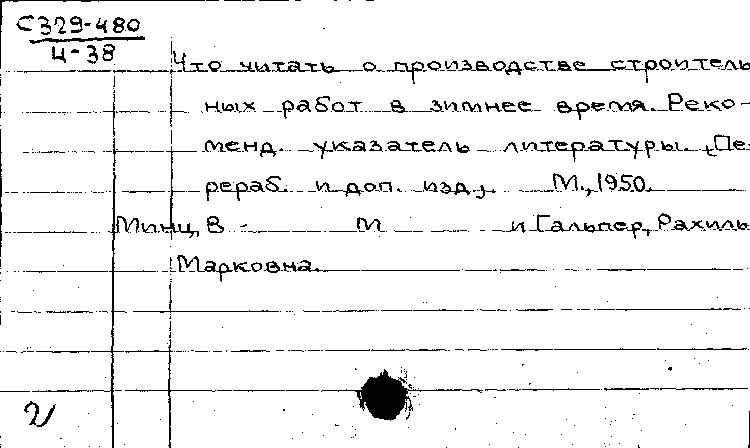 С329-480
Ч-38
Что читать о производстве строитель
ных работ в зимнее время. Реко-
менд. указатель литературы. [Пе
рераб. и доп. изд]. М., 1950.
Минц, В - М и Гальпер, Рахиль
Марковна.
2